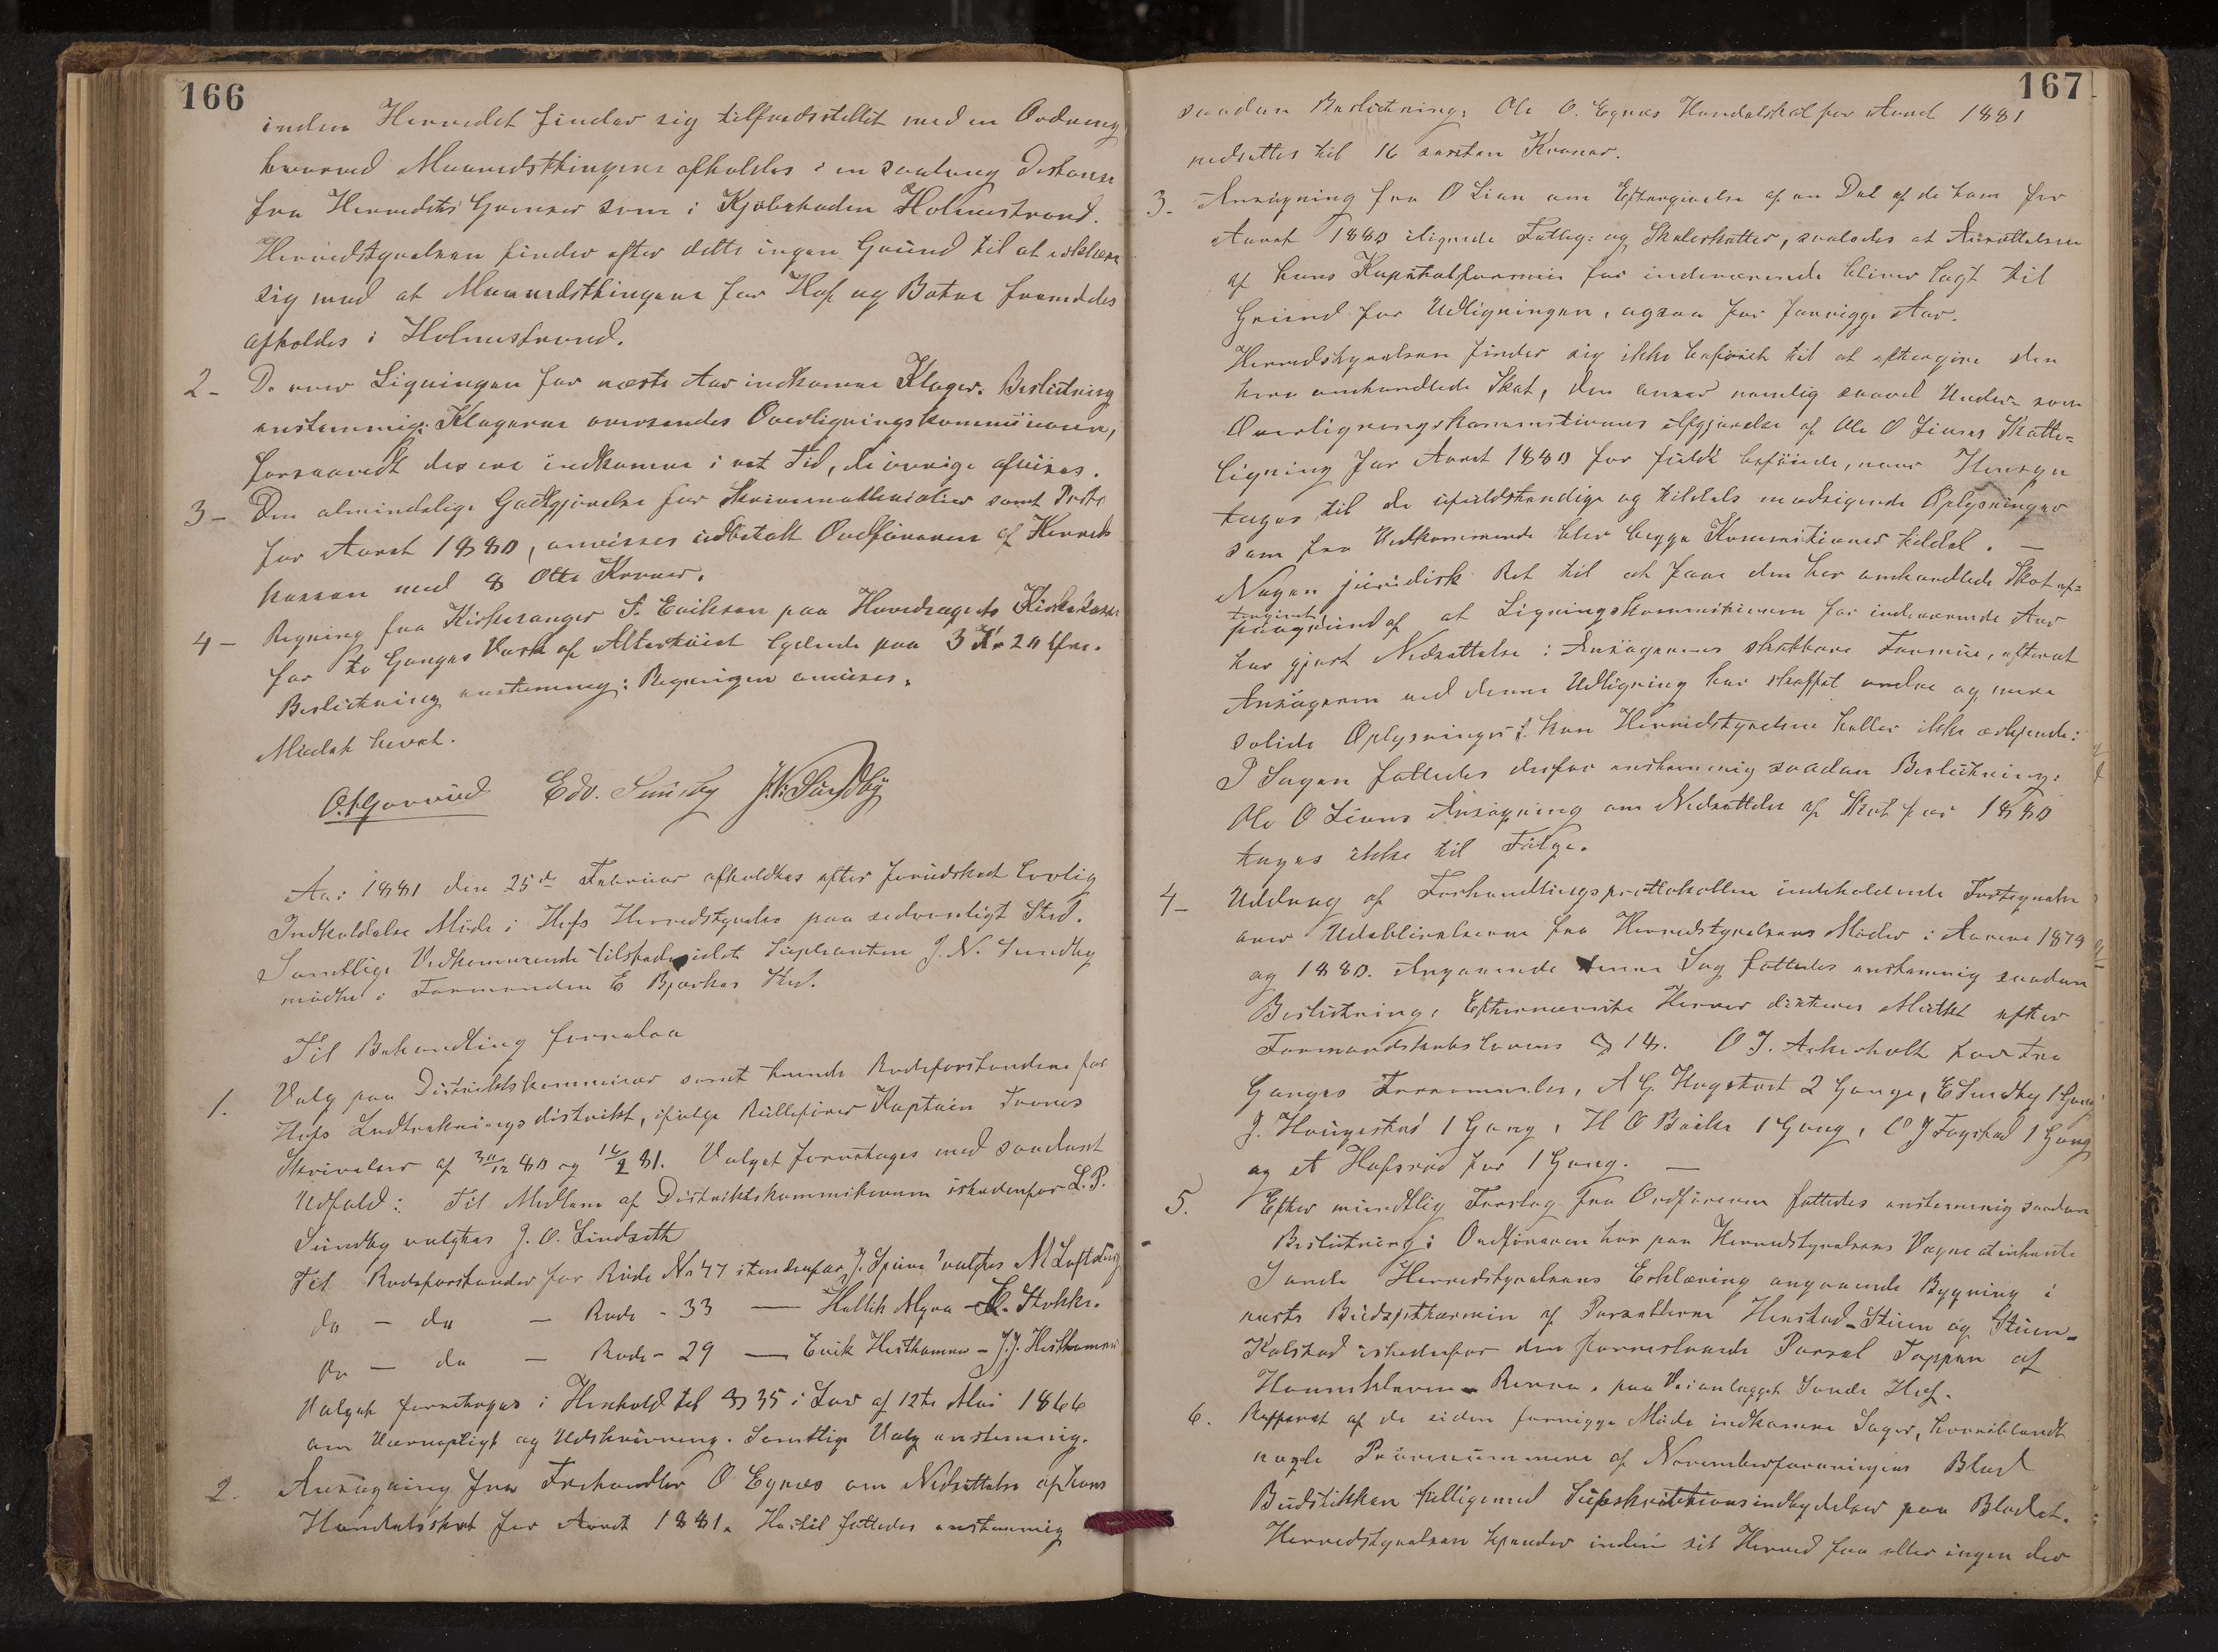 166
inden Herredet finder sig tilfredsstillet med en Ordning
hvorved Maanedsthingene afholdes i en saadan Distanse
fra Herredets Grænser som i Kjøbstaden Holmestrand.
Herredstyrelsen finder efter dette ingen Grund til at erklære
sig mod at Maanedsthingene for Hof og Botne fremdeles
afholdes i Holmestrand.
2- De over Ligningen for næste Aar indkomne Klager. Beslutning
enstemmig: Klagerne oversendes Overligningskommissionen,
forsaavidt der ere indkomne i ret Tid, de øvrige afvises.
3- Den almindelige Godtgjørelse for Skrivematterialier samt Porto
for Aaret 1880, anvises udbetalt Ordføreren af Herreds
kassen med 8 Otte Kroner.
4- Regning fra Kirkesanger S. Eriksen paa Hovedsognets Kirkekasse
for to Ganges Vask af Altertøiet lydende paa 3 Kr 20 Øre.
Beslutning enstemmig: Regningen anvises.
Mødet hævet.
Edv. Sundby J. N. Sundby
Aar 1881 den 25de Februar afholdtes efter forudskeet lovlig
Indkaldelse Møde i Hofs Herredstyrelse paa sedvanligt Sted.
Samtlige Vedkommende tilstede, idet Supleanten J. N. Sundby
mødte i Formanden E Bjerkøs Sted.
Til Behandling forelaa
1. Valg paa Distriktskommissær samt trende Rodeforstandere for
Hofs Ludtrekningsdistrikt, ifølge Rullefører Kaptain Trones
Skrivelser af 30/12 80 og 16/2 81. Valget foretages med saadant
Udfald: Til Medlem af Distriktskommissionen istedenfor L. P.
Sundby valgtes J. O. Lindseth
Til Rodeforstander for Rode No 47 istedenfor J. valgtes M
do - do - Rode - 33 — Hallik Myra - Stokke.
do - do - Rode - 29 — Erik Hesthammer - J. J. Hesthammer
Valget foretages i Henhold til § 35 i Lov af 12te Mai 1866
om Værnepligt og Udskrivning. Samtlige Valg enstemmig.
2. Ansøgning fra Frehandler O Eynæs om Nedsættelse af hans
Handelsskat for Aaret 1881. Hertil fattedes enstemmig
167
saadan Beslutning: Ole O. Eynæs Handelsskat for Aaret 1881
nedsettes til 16 sexsten Kroner.
3- Ansøgning fra O Lian om Eftergivelse af en Del af de ham for
Aaret 1880 ilignede Fattig- og Skoleskatter, saaledes at Ansættelsen
af hans Kapitalformue for indeværende bliver lagt til
Grund for Udligningen, ogsaa for forrige Aar.
Herredstyrelsen finder sig ikke beføiet til at eftergive den
her omhandlede Skat, den anser nemlig saavel Under- som
Overligningskommissionens Afgjørelse af Ole O Lians Skatte-
ligning for Aaret 1880 for fuldt beføiede, naar Hensyn
tages til de ufuldstendige og tildels modsigende Oplysninger
som fra Vedkommende blev begge Kommissioner tildel. —
Nogen juridisk Ret til at faae den her omhandlede Skat ef-
tergivet
paagrund af at Ligningskommissionen for indeværende Aar
har gjort Nedsættelse i Ansøgerens skatbare Formue, efterat
Ansøgeren ved denne Udligning har skaffet andre og mere
solide Oplysninger, kan Herredstyrelsen heller ikke erkjende:
I Sagen fattedes derfor enstemmig saadan Beslutning:
Ole O Lians Ansøgning om Nedsættelse af Skat for 1880
tages ikke til Følge.
4- Uddrag af Forhandlingsprottokollen indeholdende Fortegnelse
over Udeblivelserne fra Herredstyrelsens Møder i Aarene 1879
og 1880. Angaaende denne Sag fattedes enstemmig saadan
Beslutning: Efternævnte Herrer dikteres Mulkt efter
Formandskabslovens § 14. O J. Askerholt for Tre
Ganges Forsømmelse, A G. Hagestad 2 Gange, E Sundby 1 Gang
J. Haugestad 1 Gang, H O Bakke 1 Gang, O J Fogstad 1 Gang
og A Hofsrød for 1 Gang. —
5. Efter mundtlig Forslag fra Ordføreren fattedes enstemmig saadan
Beslutning: Ordføreren har paa Herredstyrelsens Vegne at indhente
Sande Herredstyrelsens Erklæring angaaende Bygning i
næste Budsjetthærmin af Parsellerne Henstad-Stuen og Stuen-
Kolstad istedenfor den forestaaende Parsel Toppen af
Hanekleven - Revaa, paa Veianlægget Sande Hof.
6. Refferat af de siden forrige Møde indkomne Sager, hvoriblandt
nogle Prøvenummere af Novemberforeningens Blad
Budstikken tilligemed Subskriktionsindbydelser paa Bladet.
Herredstyrelsen kjender inden sit Herred faa eller ingen der